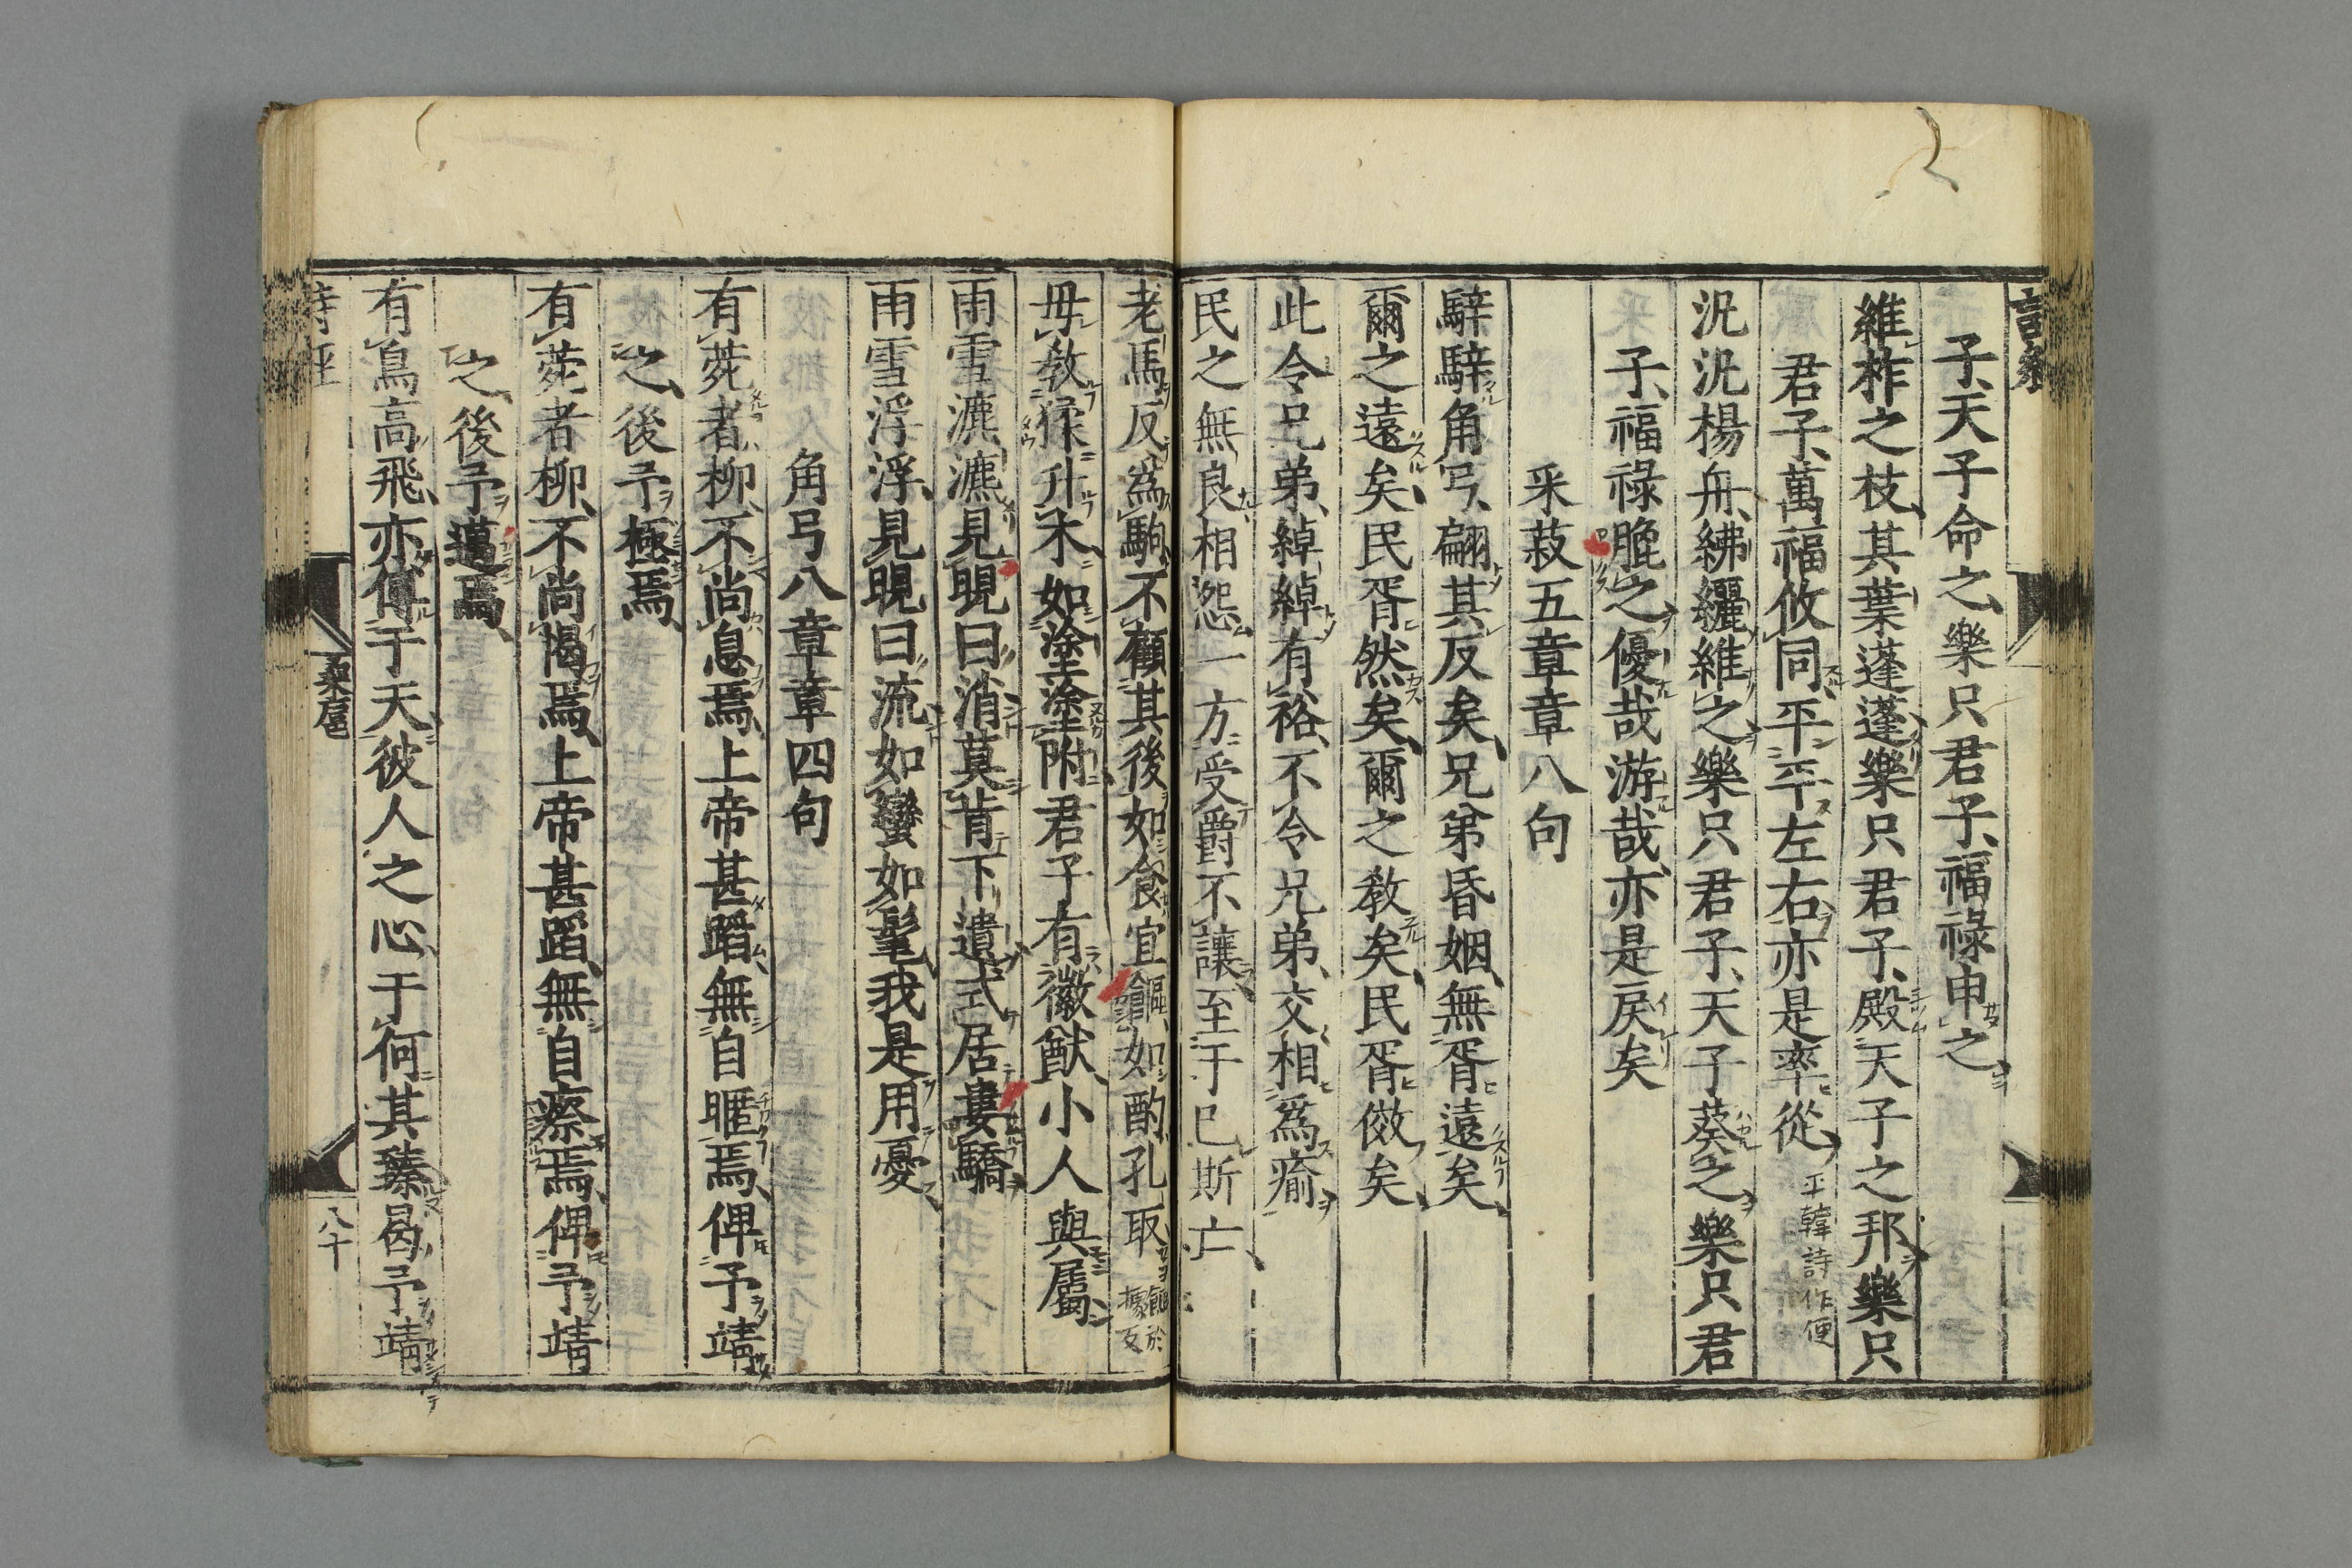 子天子命之樂只君子福祿申之
維柞之枝其葉蓬蓬樂只君子殿天子之邦樂只
君子萬福攸同平平左右亦是率從 平韓詩作便
汎汎楊舟紼纚維之樂只君子天子葵之樂只君
子福祿膍之優哉游哉亦是戾矣
采菽五章章八句
騂騂角弓翩其反矣兄弟昏姻無胥遠矣
爾之遠矣民胥然矣爾之敎矣民胥傚矣
此令兄弟綽綽有裕不令兄弟交相爲瘉
民之無良相怨一方受爵不讓至于已斯亡
老馬反爲駒不顧其後如食宜饇如酌孔取 饇於據反
毋敎猱升木如塗塗附君子有徽猷小人與屬
雨雪瀌瀌見晛曰消莫肯下遺式居婁驕
雨雪浮浮見晛曰流如蠻如髦我是用憂
角弓八章章四句
有菀者柳不尚息焉上帝甚蹈無自暱焉俾予靖
之後予極焉
有菀者柳不尚愒焉上帝甚蹈無自瘵焉俾予靖
之後予邁焉
有鳥高飛亦傅于天彼人之心于何其臻曷予靖
詩經
桑扈
八十